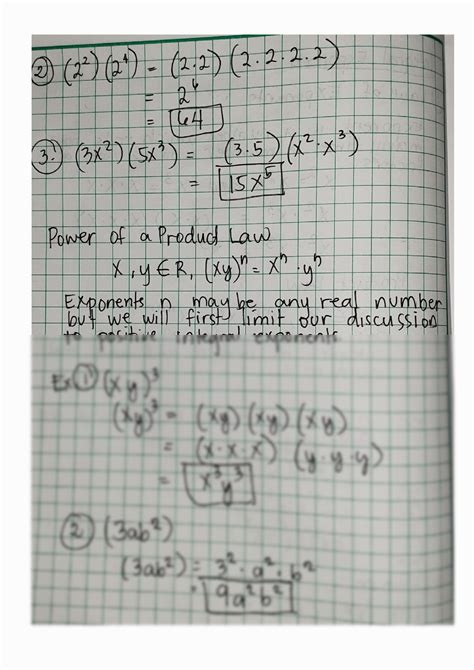 2) (2²)(2⁴) = (2.2)(2.2.2.2)
= 2⁶
= 64
3.) (3x²)(5x³) = (3.5)(x²·x³)
= 15x⁵
Power of a Product Law
X, y ∈ R, (xy)ⁿ = xⁿ · yⁿ
Exponents n may be any real number
but we will first limit our discussion
to positive integral exponents.
Ex 1 (xy)³
(xy)³ = (xy)(xy)(xy)
= (x·x·x) (y·y·y)
= x³y³
2 (3ab²)
(3ab²) = 3²·a²·b²
= 9a²b²